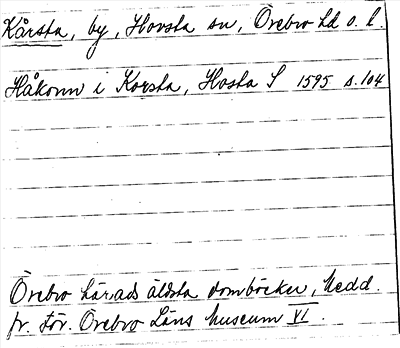 Kårsta, by, Hovsta sn, Örebro hd o. l.
Håkonn i Korsta, Hosta S 1595 s. 104
Örebro härads äldsta domböcker, Medd.
fr. För. Örebro Läns Museum XI.